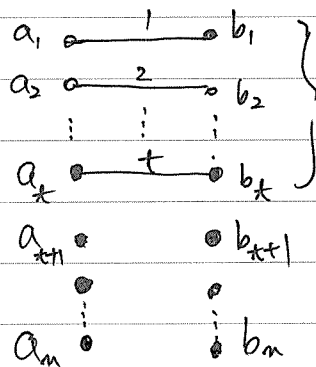 a₁ 1 b₁
a₂ 2 b₂
aₜ t bₜ
aₜ₊₁ bₜ₊₁
aₙ bₙ